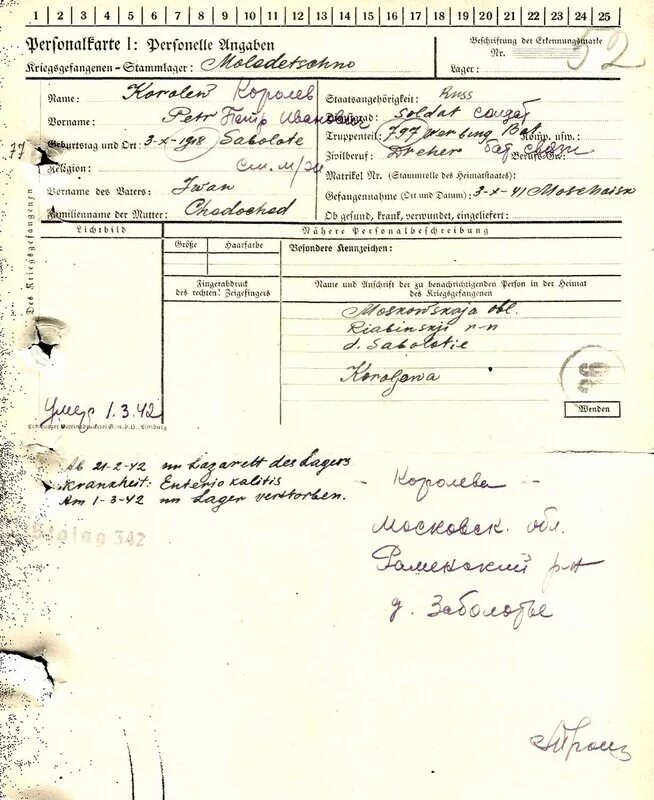 1 2 3 4 5 6 7 8 9 10 11 12 13 14 15 16 17 18 19 20 21 22 23 24 25
Personalkarte I: Personelle Angaben
Kriegsgefangenen-Stammlager: Molodetschno
Beschriftung der Erkennungsmarke
Nr. 52
Lager:
Des Kriegsgefangenen
Name: Korolew Королев
Vorname: Petr Петр Иванович
Geburtstag und Ort: 3-X-1918 Sabolote
Religion:
Vorname des Vaters: Iwan
Familienname der Mutter: Chodochod
Staatsangehörigkeit: Russ
Dienstgrad: Soldat солдат
Truppenteil: 797 Werbung Bat. Komp. usw.:
Zivilberuf: Dreher бат связи Berufs-Gr.:
Matrikel Nr. (Stammrolle des Heimatstaates):
Gefangennahme (Ort und Datum): 3-X-41 Moschaisk
Ob gesund, krank, verwundet, eingeliefert:
Lichtbild
Nähere Personalbeschreibung
Größe Haarfarbe Besondere Kennzeichen:
Fingerabdruck
des rechten! Zeigefingers
Name und Anschrift der zu benachrichtigenden Person in der Heimat
des Kriegsgefangenen
Moskowskaja obl.
Riabinskji r-n
d. Sabolotie
Koroljowa
26
Wenden
Умер 1.3.42
Limburger Vereinsdruckerei G.m.b.H., Limburg
Ab 21-2-42 im Lazarett des Lagers
Krankheit: Enterio kalitis
Am 1-3-42 im Lager verstorben.
Stalag 342
Королева
Московск. обл.
Раменский р-н
д. Заболотье